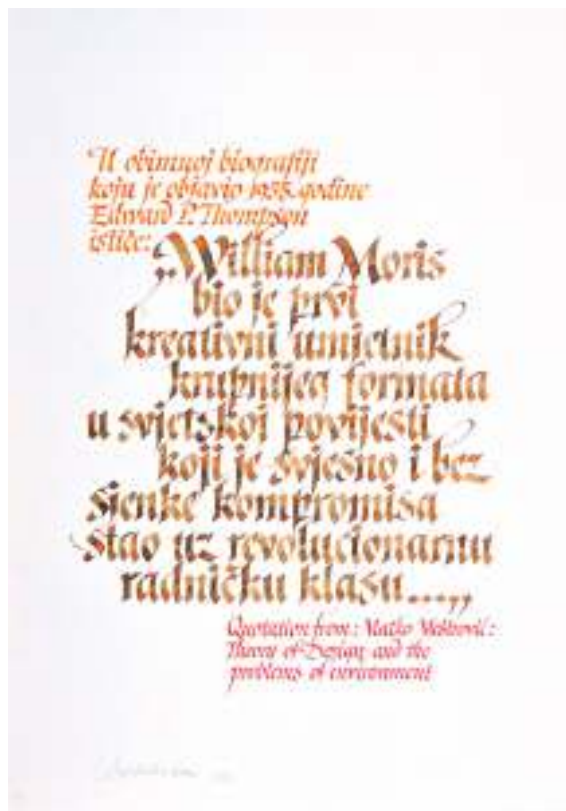 U obimnoj biografiji
koju je objavio 1955. godine
Edward P. Thompson
ističe:
„William Moris
bio je prvi
kreativni umjetnik
krupnijeg formata
u svjetskoj povijesti
koji je svjesno i bez
sjenke kompromisa
stao uz revolucionarnu
radničku klasu....„
Quotation from: Matko Meštrović:
Theory of Design and the
problems of environment